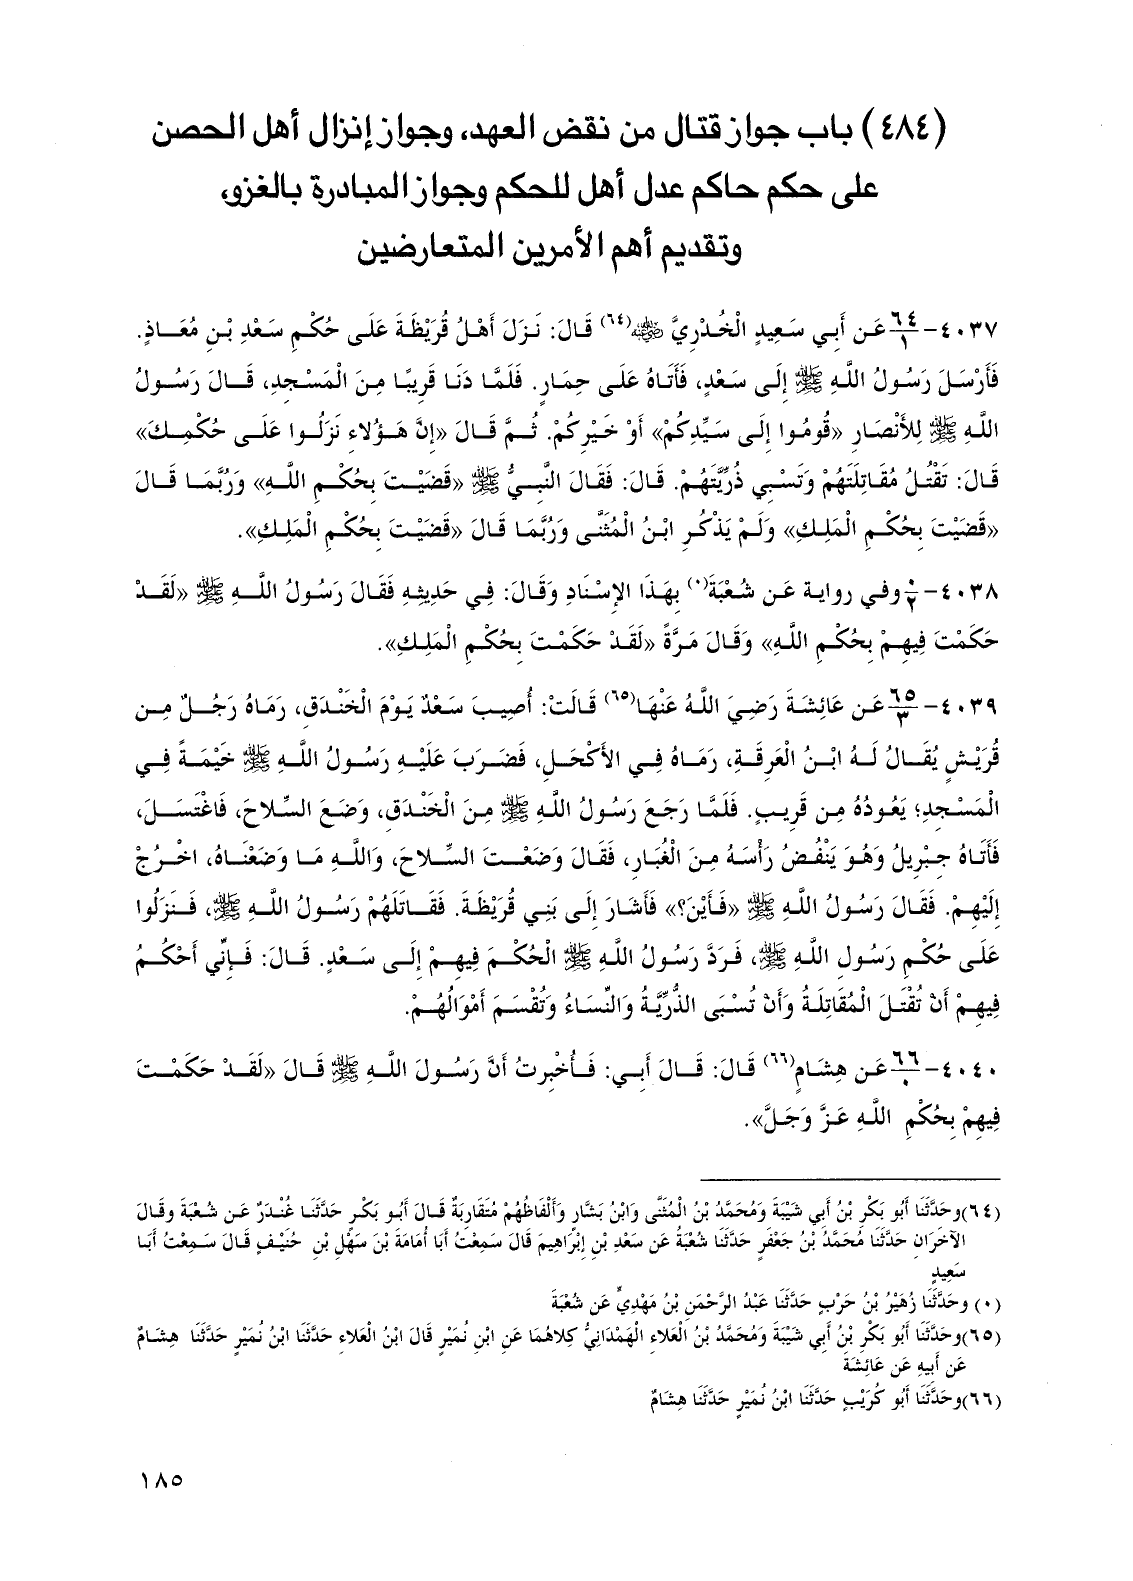 (٤٨٤) باب جواز قتال من نقض العهد، وجواز إنزال أهل الحصن
على حكم حاكم عدل أهل للحكم وجواز المبادرة بالغزو،
وتقديم أهم الأمرين المتعارضين
٤٠٣٧- ٦٤/١ عَن أَبِي سَعِيدٍ الْخُدْرِيَّ ﷺ(٦٤) قَالَ: نَزَلَ أَهْلُ قُرَيْظَةَ عَلَى حُكْمِ سَعْدِ بْنِ مُعَاذٍ.
فَأَرْسَلَ رَسُولُ اللَّهِ ﷺ إِلَى سَعْدٍ، فَأَتَاهُ عَلَى حِمَارٍ. فَلَمَّا دَنَا قَرِيبًا مِنَ الْمَسْجِدِ، قَالَ رَسُولُ
اللَّهِ ﷺ لِلأَنْصَارِ «قُومُوا إِلَى سَيِّدِكُمْ» أَوْ خَيْرِكُمْ. ثُمَّ قَالَ «إِنَّ هَؤُلاءِ نَزَلُوا عَلَى حُكْمِكَ»
قَالَ: تَقْتُلُ مُقَاتِلَتَهُمْ وَتَسْبِي ذُرِّيَّتَهُمْ. قَالَ: فَقَالَ النَّبِيُّ ﷺ «قَضَيْتَ بِحُكْمِ اللَّهِ» وَرُبَّمَا قَالَ
«قَضَيْتَ بِحُكْمِ الْمَلِكِ» وَلَمْ يَذْكُرِ ابْنُ الْمُثَنَّى وَرُبَّمَا قَالَ «قَضَيْتَ بِحُكْمِ الْمَلِكِ».
٤٠٣٨- ٠/٢ وفي رواية عَن شُعْبَةَ(٠) بِهَذَا الإِسْنَادِ وَقَالَ: فِي حَدِيثِهِ فَقَالَ رَسُولُ اللَّهِ ﷺ «لَقَدْ
حَكَمْتَ فِيهِمْ بِحُكْمِ اللَّهِ» وَقَالَ مَرَّةً «لَقَدْ حَكَمْتَ بِحُكْمِ الْمَلِكِ».
٤٠٣٩- ٦٥/٣ عَن عَائِشَةَ رَضِيَ اللَّهُ عَنْهَا(٦٥) قَالَتْ: أُصِيبَ سَعْدٌ يَوْمَ الْخَنْدَقِ، رَمَاهُ رَجُلٌ مِن
قُرَيْشٍ يُقَالُ لَهُ ابْنُ الْعَرِقَةِ، رَمَاهُ فِي الأَكْحَلِ، فَضَرَبَ عَلَيْهِ رَسُولُ اللَّهِ ﷺ خَيْمَةً فِي
الْمَسْجِدِ؛ يَعُودُهُ مِن قَرِيبٍ. فَلَمَّا رَجَعَ رَسُولُ اللَّهِ ﷺ مِنَ الْخَنْدَقِ، وَضَعَ السِّلاحَ، فَاغْتَسَلَ،
فَأَتَاهُ جِبْرِيلُ وَهُوَ يَنْفُضُ رَأْسَهُ مِنَ الْغُبَارِ، فَقَالَ وَضَعْتَ السِّلاحَ، وَاللَّهِ مَا وَضَعْنَاهُ، اخْرُجْ
إِلَيْهِمْ. فَقَالَ رَسُولُ اللَّهِ ﷺ «فَأَيْنَ؟» فَأَشَارَ إِلَى بَنِي قُرَيْظَةَ. فَقَاتَلَهُمْ رَسُولُ اللَّهِ ﷺ، فَنَزَلُوا
عَلَى حُكْمِ رَسُولِ اللَّهِ ﷺ، فَرَدَّ رَسُولُ اللَّهِ ﷺ الْحُكْمَ فِيهِمْ إِلَى سَعْدٍ. قَالَ: فَإِنِّي أَحْكُمُ
فِيهِمْ أَنْ تُقْتَلَ الْمُقَاتِلَةُ وَأَنْ تُسْبَى الذُّرِّيَّةُ وَالنِّسَاءُ وَتُقْسَمَ أَمْوَالُهُمْ.
٤٠٤٠- ٦٦/٠ عَن هِشَامٍ(٦٦) قَالَ: قَالَ أَبِي: فَأُخْبِرتُ أَنَّ رَسُولَ اللَّهِ ﷺ قَالَ «لَقَدْ حَكَمْتَ
فِيهِمْ بِحُكْمِ اللَّهِ عَزَّ وَجَلَّ».
(٦٤)وحَدَّثَنَا أَبُو بَكْرِ بْنُ أَبِي شَيْبَةَ وَمُحَمَّدُ بْنُ الْمُثَنَّى وَابْنُ بَشَّارٍ وَأَلْفَاظُهُمْ مُتَقَارِبَةٌ قَالَ أَبُو بَكْرٍ حَدَّثَنَا غُنْدَرٌ عَن شُعْبَةَ وقَالَ
الآخَرَانِ حَدَّثَنَا مُحَمَّدُ بْنُ جَعْفَرٍ حَدَّثَنَا شُعْبَةُ عَن سَعْدِ بْنِ إِبْرَاهِيمَ قَالَ سَمِعْتُ أَبَا أُمَامَةَ بْنَ سَهْلِ بْنِ حُنَيْفٍ قَالَ سَمِعْتُ أَبَا
سَعِيدٍ
(٠) وحَدَّثَنَا زُهَيْرُ بْنُ حَرْبٍ حَدَّثَنَا عَبْدُ الرَّحْمَنِ بْنُ مَهْدِيٍّ عَن شُعْبَةَ
(٦٥)وحَدَّثَنَا أَبُو بَكْرِ بْنُ أَبِي شَيْبَةَ وَمُحَمَّدُ بْنُ الْعَلاءِ الْهَمْدَانِيُّ كِلاهُمَا عَنِ ابْنِ نُمَيْرٍ قَالَ ابْنُ الْعَلاءِ حَدَّثَنَا ابْنُ نُمَيْرٍ حَدَّثَنَا هِشَامٌ
عَن أَبِيهِ عَن عَائِشَةَ
(٦٦)وحَدَّثَنَا أَبُو كُرَيْبٍ حَدَّثَنَا ابْنُ نُمَيْرٍ حَدَّثَنَا هِشَامٌ
١٨٥